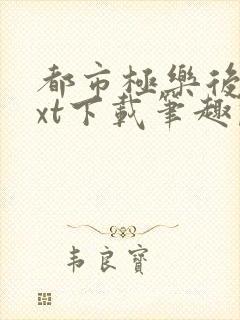 都市極樂後
xt下載筆趣
韦良寶